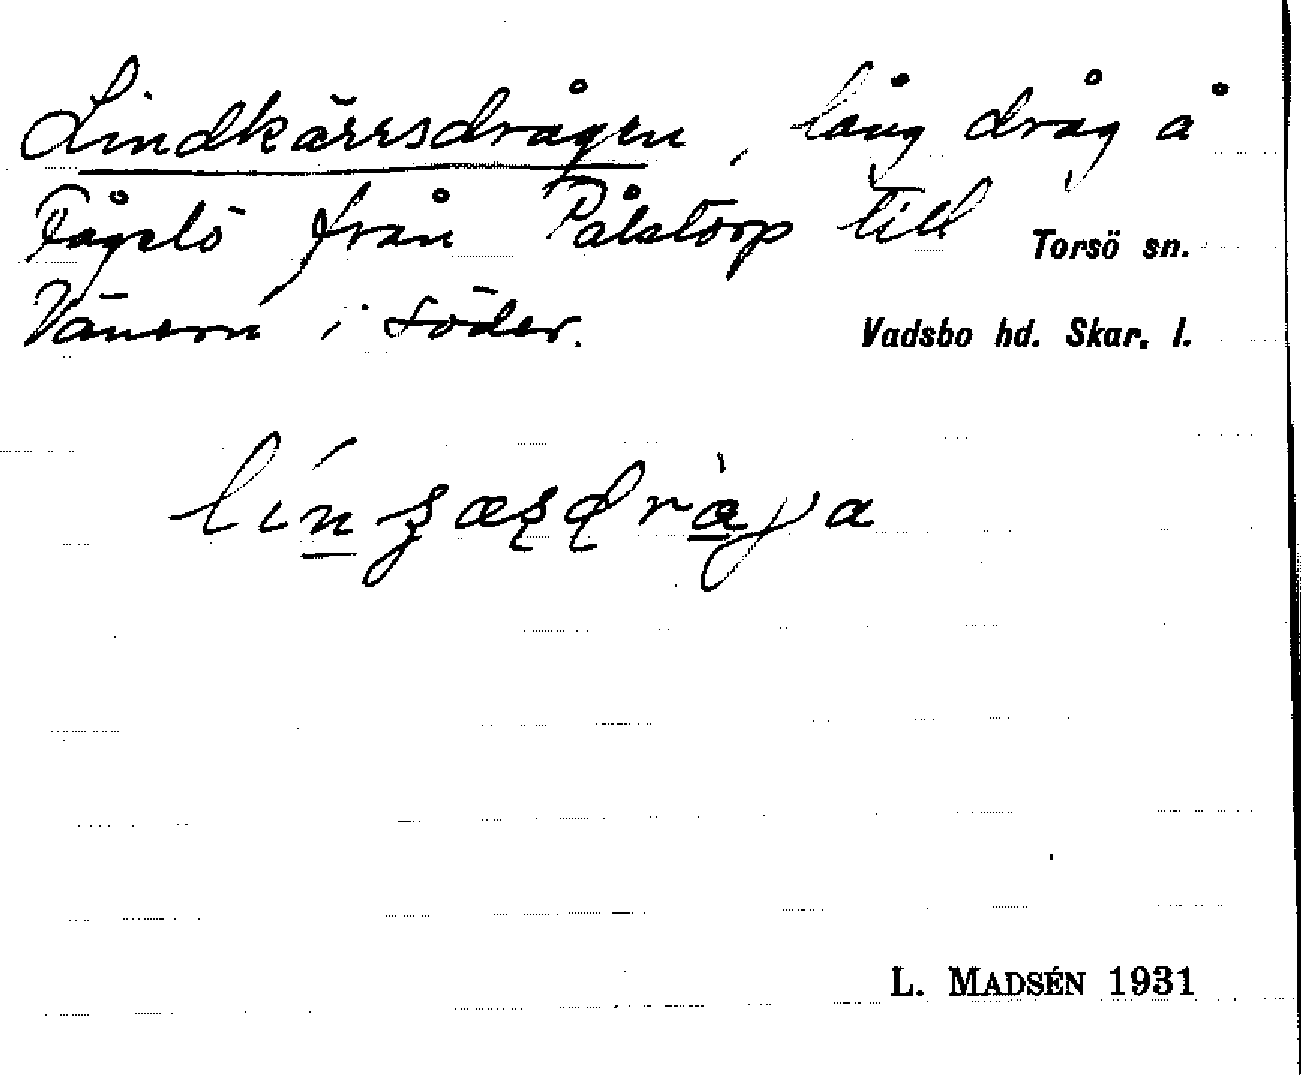 Lindkärrsdrågen, lång dråg å
Fågelö från Pålstorp till
Torsö sn.
Vänern i söder.
Vadsbo hd. Skar. l.
L. MADSÉN 1931